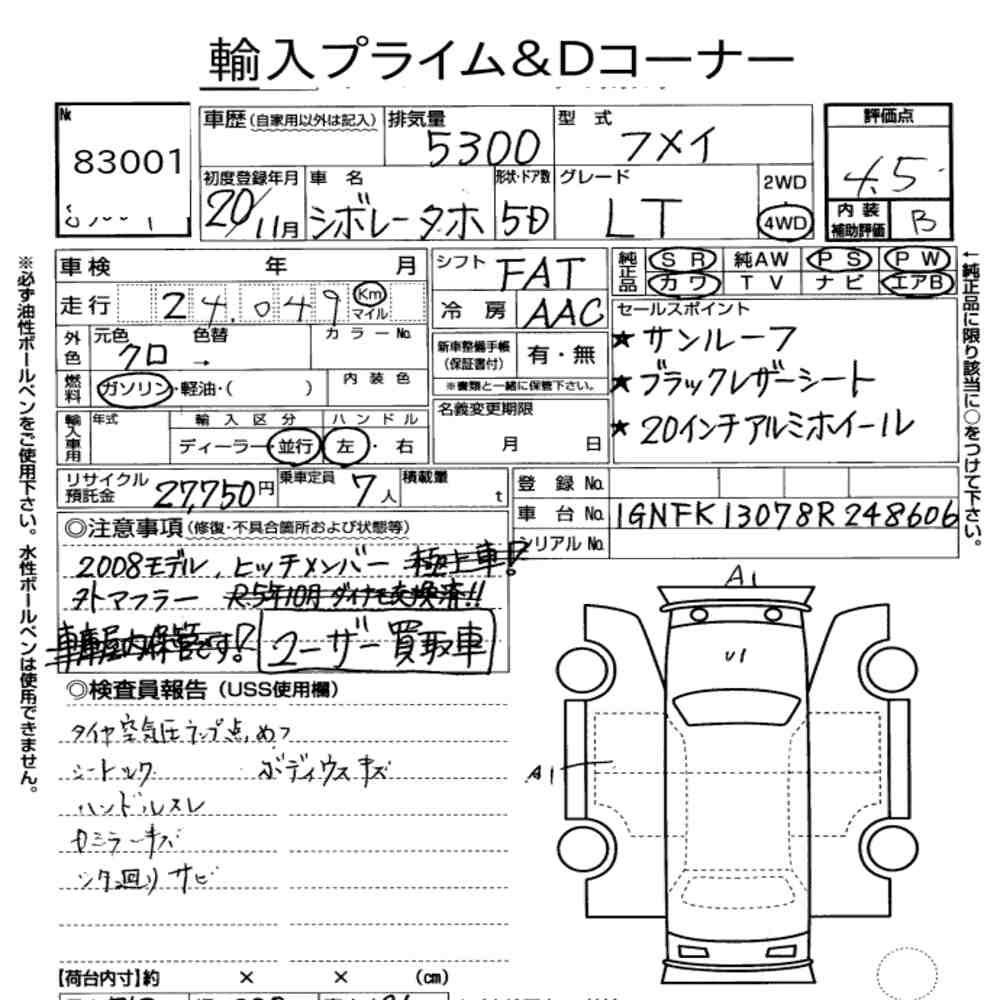 輸入プライム&Dコーナー
№
83001
車歴 (自家用以外は記入)
排気量
5300
型 式
フメイ
評価点
4.5
初度登録年月
20/11月
車 名
シボレータホ
形状・ドア数
5D
グレード
LT
2WD
4WD
内 装
補助評価
B
車検 年 月
シフト
FAT
純正品
SR 純AW PS PW
カワ TV ナビ エアB
走行
24,049
Km
マイル
冷 房
AAC
セールスポイント
★ サンルーフ
★ ブラックレザーシート
★ 20インチアルミホイール
外色
元色 色替
クロ →
カラーNo.
新車整備手帳
(保証書付)
有・無
※書類と一緒に保管下さい。
燃料
ガソリン・軽油・( )
内 装 色
名義変更期限
月 日
輸入車用
年式
輸 入 区 分
ディーラー・並行
ハ ン ド ル
左・右
リサイクル
預託金
27,750円
乗車定員
7人
積載量
t
登 録 No.
車 台 No. 1GNFK13078R248606
シリアル No.
◎注意事項(修復・不具合箇所および状態等)
2008モデル, ヒッチメンバー 極上車!!
ヌトマフラー R.5年10月 ダイナモ交換済!!
車庫屋内保管です!!
ユーザー買取車
◎検査員報告(USS使用欄)
タイヤ空気圧ランプ点,めつ
シートシワ ボディウスキズ
ハンドルスレ
Dミラーキズ
シタ廻りサビ
A1
U1
A1
【荷台内寸】約 × × (cm)
※必ず油性ボールペンをご使用下さい。水性ボールペンは使用できません。
←純正品に限り該当に○をつけて下さい。